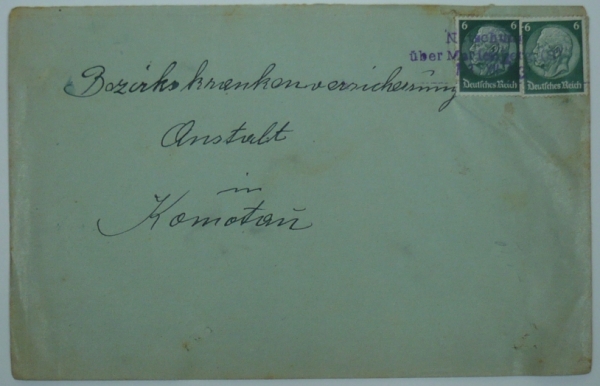 6 6
über
Deutsches Reich Deutsches Reich
Bezirkskrankenversicherung
Anstalt
in
Komotau